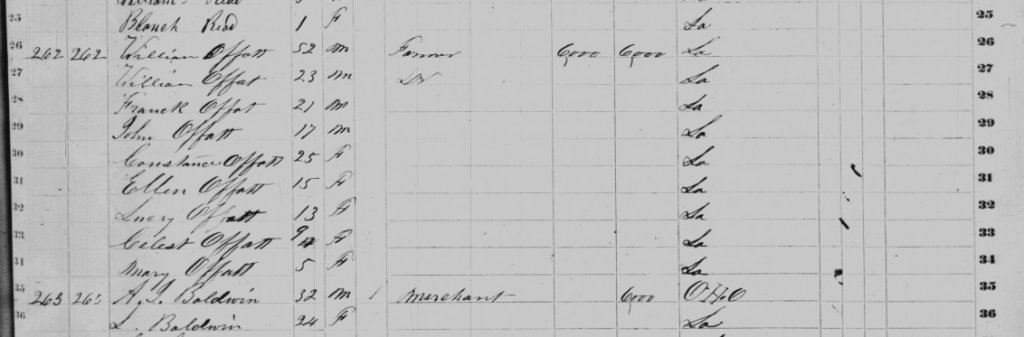 25 Blanch Read 1 F La 25
26 262 262 William Offatt 52 M Farmer 6,000 6,000 La 26
27 William Offat 23 M La 27
28 Franck Offat 21 M La 28
29 John Offatt 17 M La 29
30 Constance Offatt 25 F La 30
31 Ellen Offatt 15 F La 31
32 Lucy Offatt 13 F La 32
33 Celest Offatt 9 F La 33
34 Mary Offatt 5 F La 34
35 263 263 A. S. Baldwin 32 M 1 Merchant 6,000 OHO 35
36 L. Baldwin 24 F La 36